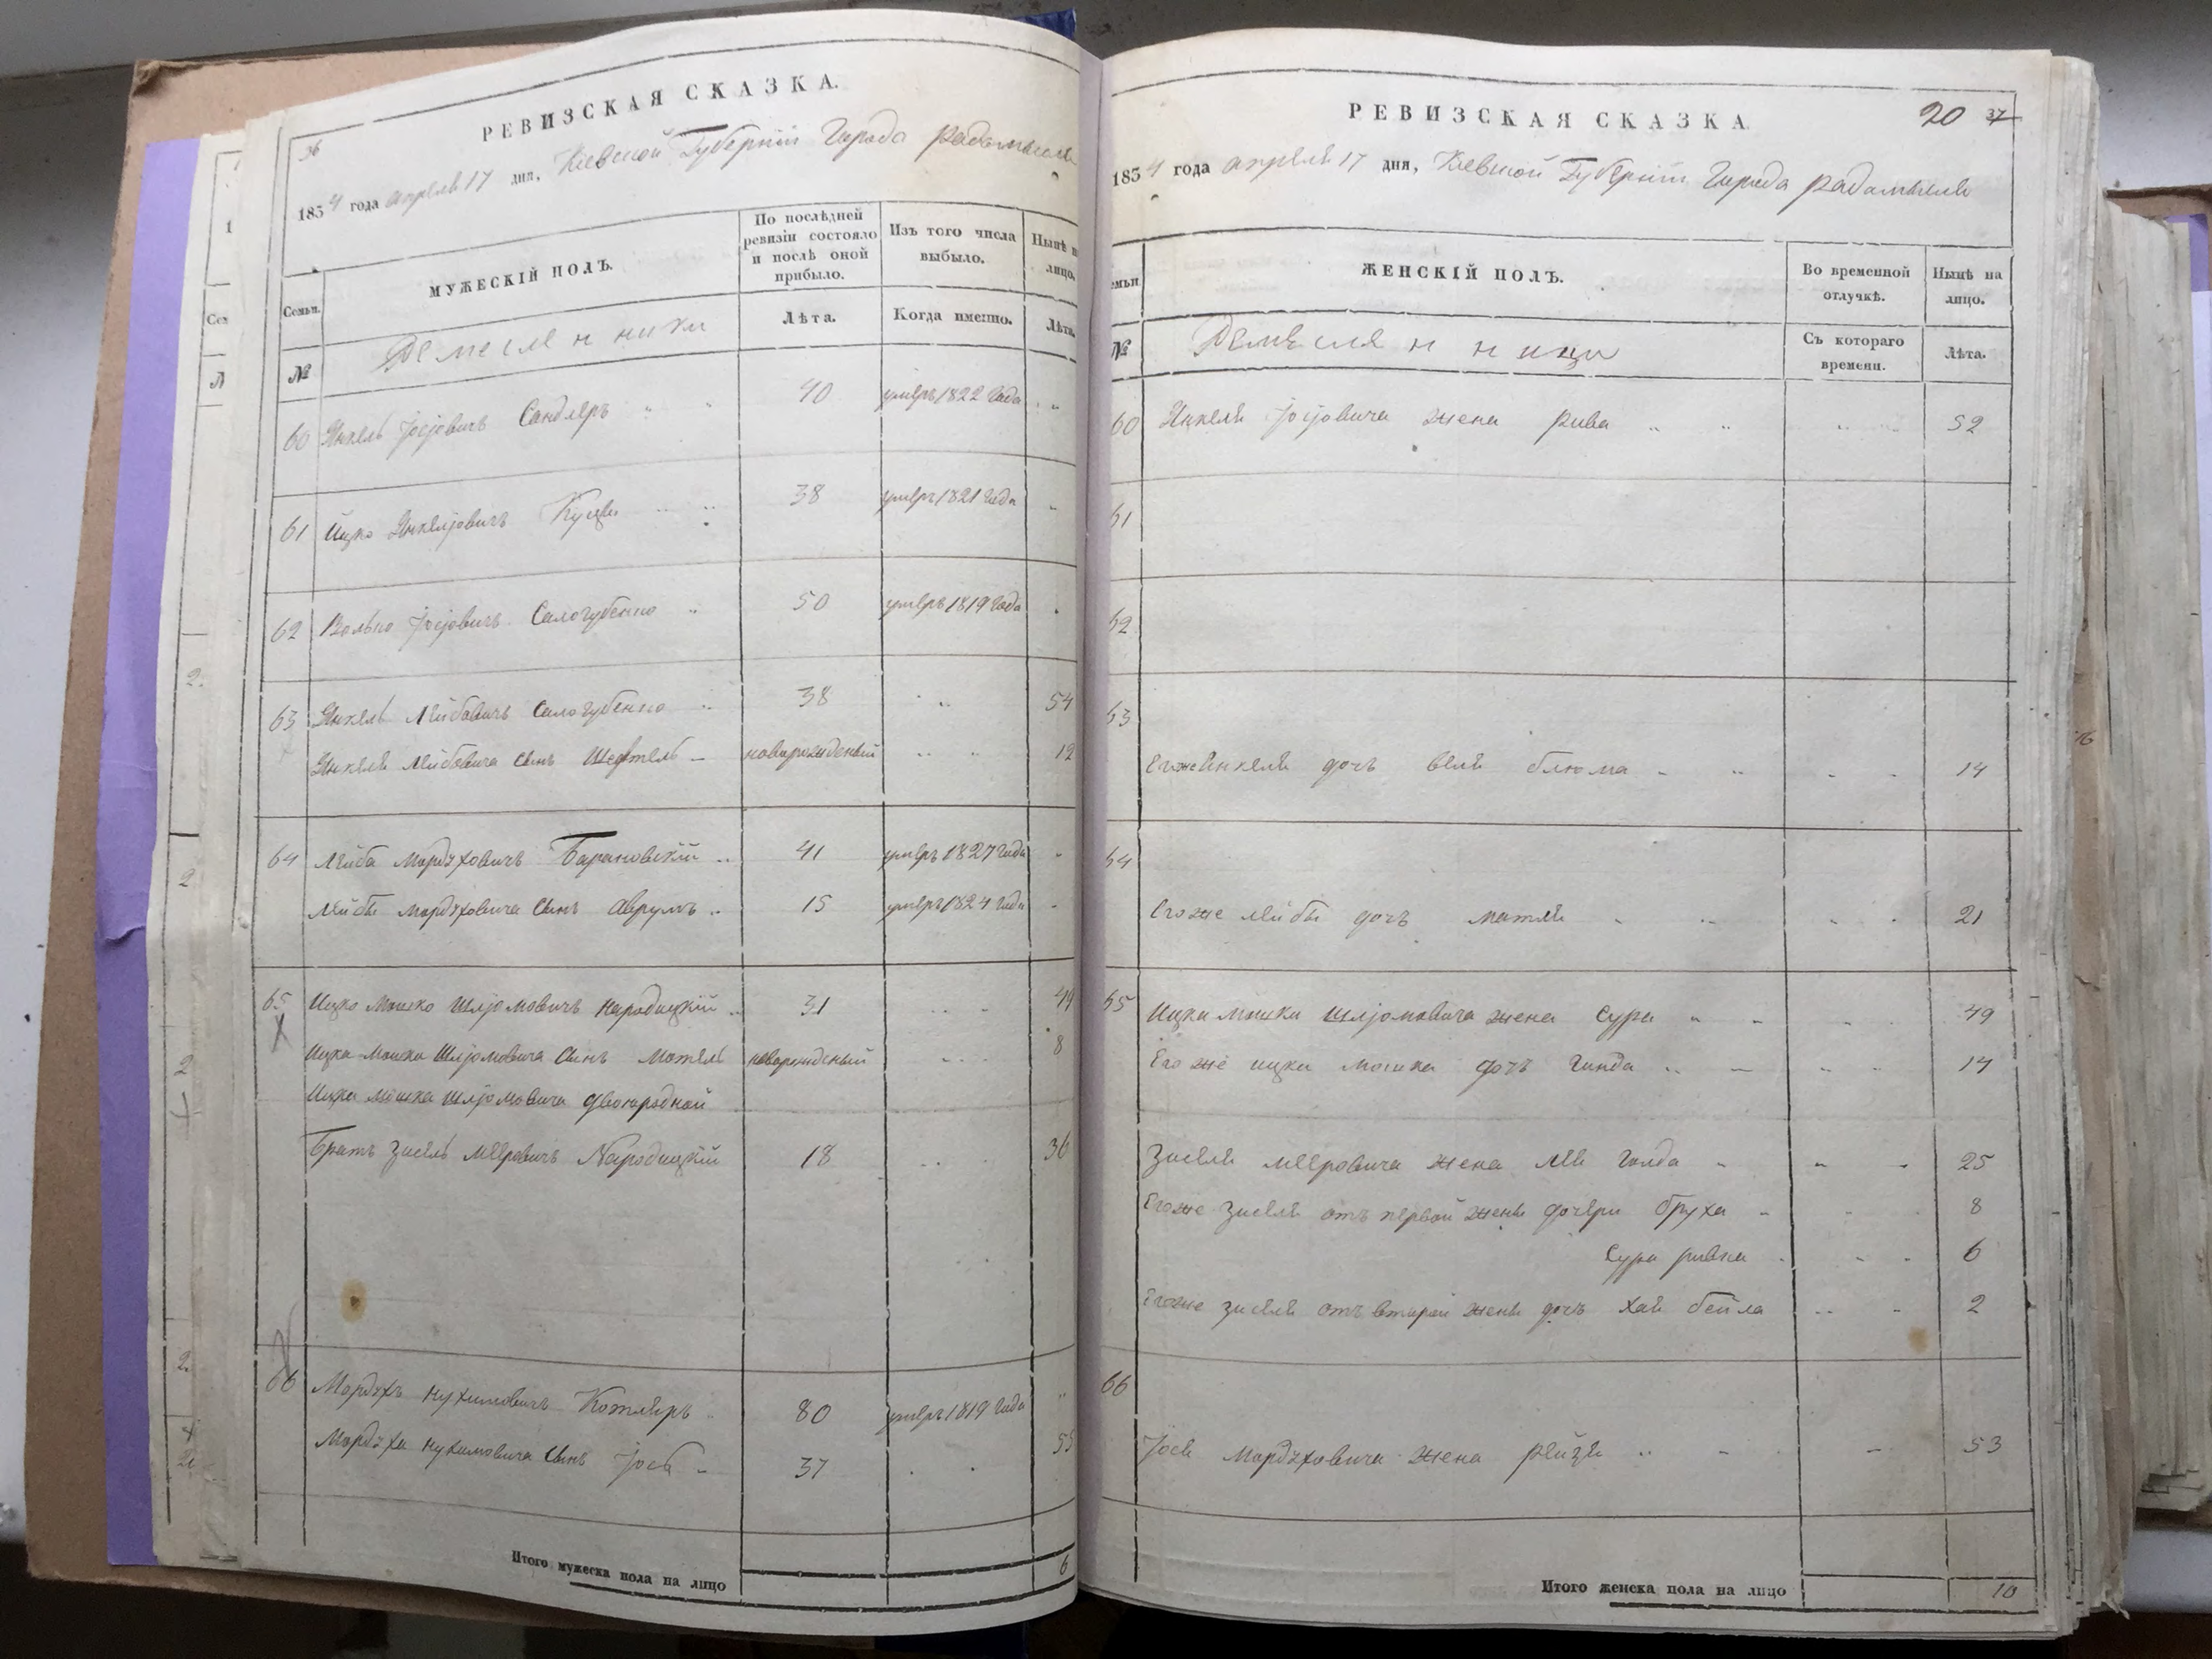 36
РЕВИЗСКАЯ СКАЗКА.
1834 года апреля 17 дня, Кіевской Губерніи Города Радомысля
Семьи.
МУЖЕСКІЙ ПОЛЪ.
По послѣдней ревизіи состояло и послѣ оной прибыло.
Изъ того числа выбыло.
Нынѣ на лицо.
№
Ремеслен ники
Лѣта.
Когда именно.
Лѣта.
60 Янкель Іосіовичъ Сандлеръ 40 умеръ 1822 года
61 Ицко Янкеліовичъ 38 умеръ 1821 года
62 Волько Іосіовичъ Салогубенко 50 умеръ 1819 года
63 Янкель Лейбовичъ Салогубенко 38 54
Янкеля Лейбовича сынъ Шефтель новорожденый 12
64 Лейба Мордуховичъ Барановскій 41 умеръ 1827 года
Лейбы Мордуховича сынъ Аврумъ 15 умеръ 1824 года
65 Ицко Мошко Шліомовичъ Народицкій 31 49
Ицка Мошка Шліомовича сынъ Мотель новорожденый 8
Ицка Мошка Шліомовича двоюродной
Братъ Зисель Меировичъ Народицкій 18 36
66 Мордухъ Нухимовичъ Котляръ 80 умеръ 1819 года
Мордуха Нухимовича сынъ Іось 37 53
Итого мужеска пола на лицо 6
РЕВИЗСКАЯ СКАЗКА
20 37
1834 года апреля 17 дня, Кіевской Губерніи Города Радомысля
ЖЕНСКІЙ ПОЛЪ.
Во временной отлучкѣ.
Нынѣ на лицо.
№
Ремеслен н ицы
Съ котораго времени.
Лѣта.
60 Янкеля Іосіовича жена Рива 52
61
62
63
Егоже Янкеля дочь Беля Блюма 14
64
Егоже Лейбы дочъ Матля 21
65 Ицка Мошка Шліомовича жена Сура 49
Его же Ицка Мошка дочъ Гинда 14
Зиселя Меировича жена Лея Голда 25
Егоже Зиселя отъ первой жены дочери Бруха 8
Сура Ривка 6
Егоже Зиселя отъ второй жены дочъ Хая Бейла 2
66
Іося Мордуховича жена Рейзя 53
Итого женска пола на лицо 10